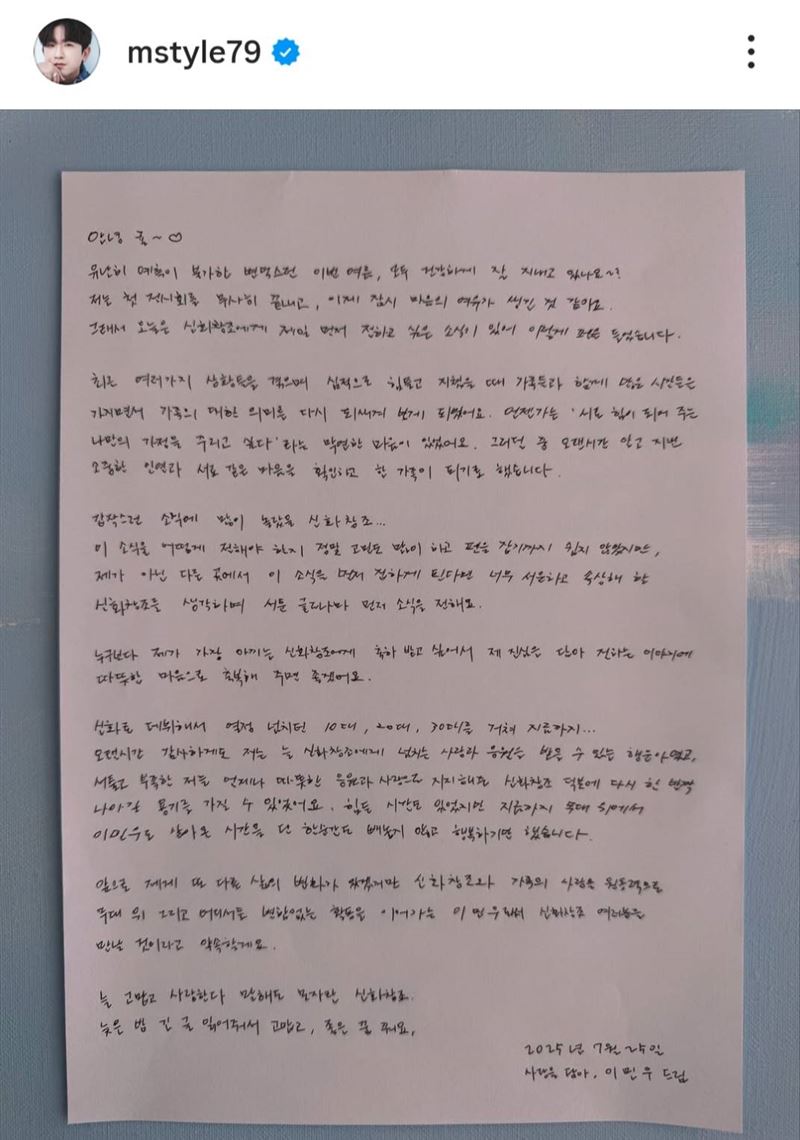 mstyle79
안녕 귤~♡
유난히 예측이 불가한 변덕스런 이번 여름, 모두 건강하게 잘 지내고 있나요~?
저는 첫 전시회를 무사히 끝내고, 이제 잠시 마음의 여유가 생긴 것 같아요.
그래서 오늘은 신화창조에게 제일 먼저 전하고 싶은 소식이 있어 이렇게 펜을 들었습니다.
최근 여러가지 상황들을 겪으며 심적으로 힘들고 지쳤을 때 가족들과 함께 많은 시간들은
가지면서 가족의 대한 의미를 다시 되새겨 보게 되었어요. 언젠가는 '서로 힘이 되어 주는
나만의 가정을 꾸리고 싶다'라는 막연한 마음이 있었어요. 그러던 중 오랜시간 알고 지낸
소중한 인연과 서로 같은 마음을 확인하고 한 가족이 되기로 했습니다.
갑작스런 소식에 많이 놀랐을 신화창조...
이 소식을 어떻게 전해야 할지 정말 고민도 많이 하고 펜을 잡기까지 쉽지 않았지만,
제가 아닌 다른 곳에서 이 소식을 먼저 전하게 된다면 너무 서운하고 속상해 할
신화창조를 생각하며 서툰 글이나마 먼저 소식을 전해요.
누구보다 제가 가장 아끼는 신화창조에게 축하 받고 싶어서 제 진심을 담아 전하는 이야기에
따뜻한 마음으로 축복해 주면 좋겠어요.
신화로 데뷔해서 열정 넘치던 10대, 20대, 30대를 거쳐 지금까지...
오랜시간 감사하게도 저는 늘 신화창조에게 넘치는 사랑과 응원을 받을 수 있는 행운아였고,
서툴고 부족한 저를 언제나 따뜻한 응원과 사랑으로 지지해준 신화창조 덕분에 다시 한 번 더
나아갈 용기를 가질 수 있었어요. 힘든 시간도 있었지만 지금까지 무대 위에서
이민우로 살아온 시간을 단 한순간도 빼놓지 않고 행복하기만 했습니다.
앞으로 제게 또 다른 삶의 변화가 있겠지만 신화창조와 가족의 사랑을 원동력으로
무대 위 그리고 어디서든 변함없는 활동을 이어가는 이민우로서 신화창조 여러분을
만날 것이라고 약속할게요.
늘 고맙고 사랑한다 말해도 모자란 신화창조.
늦은 밤 긴 글 읽어줘서 고맙고, 좋은 꿈 꿔요.
2025년 7월 25일
사랑을 담아. 이민우 드림